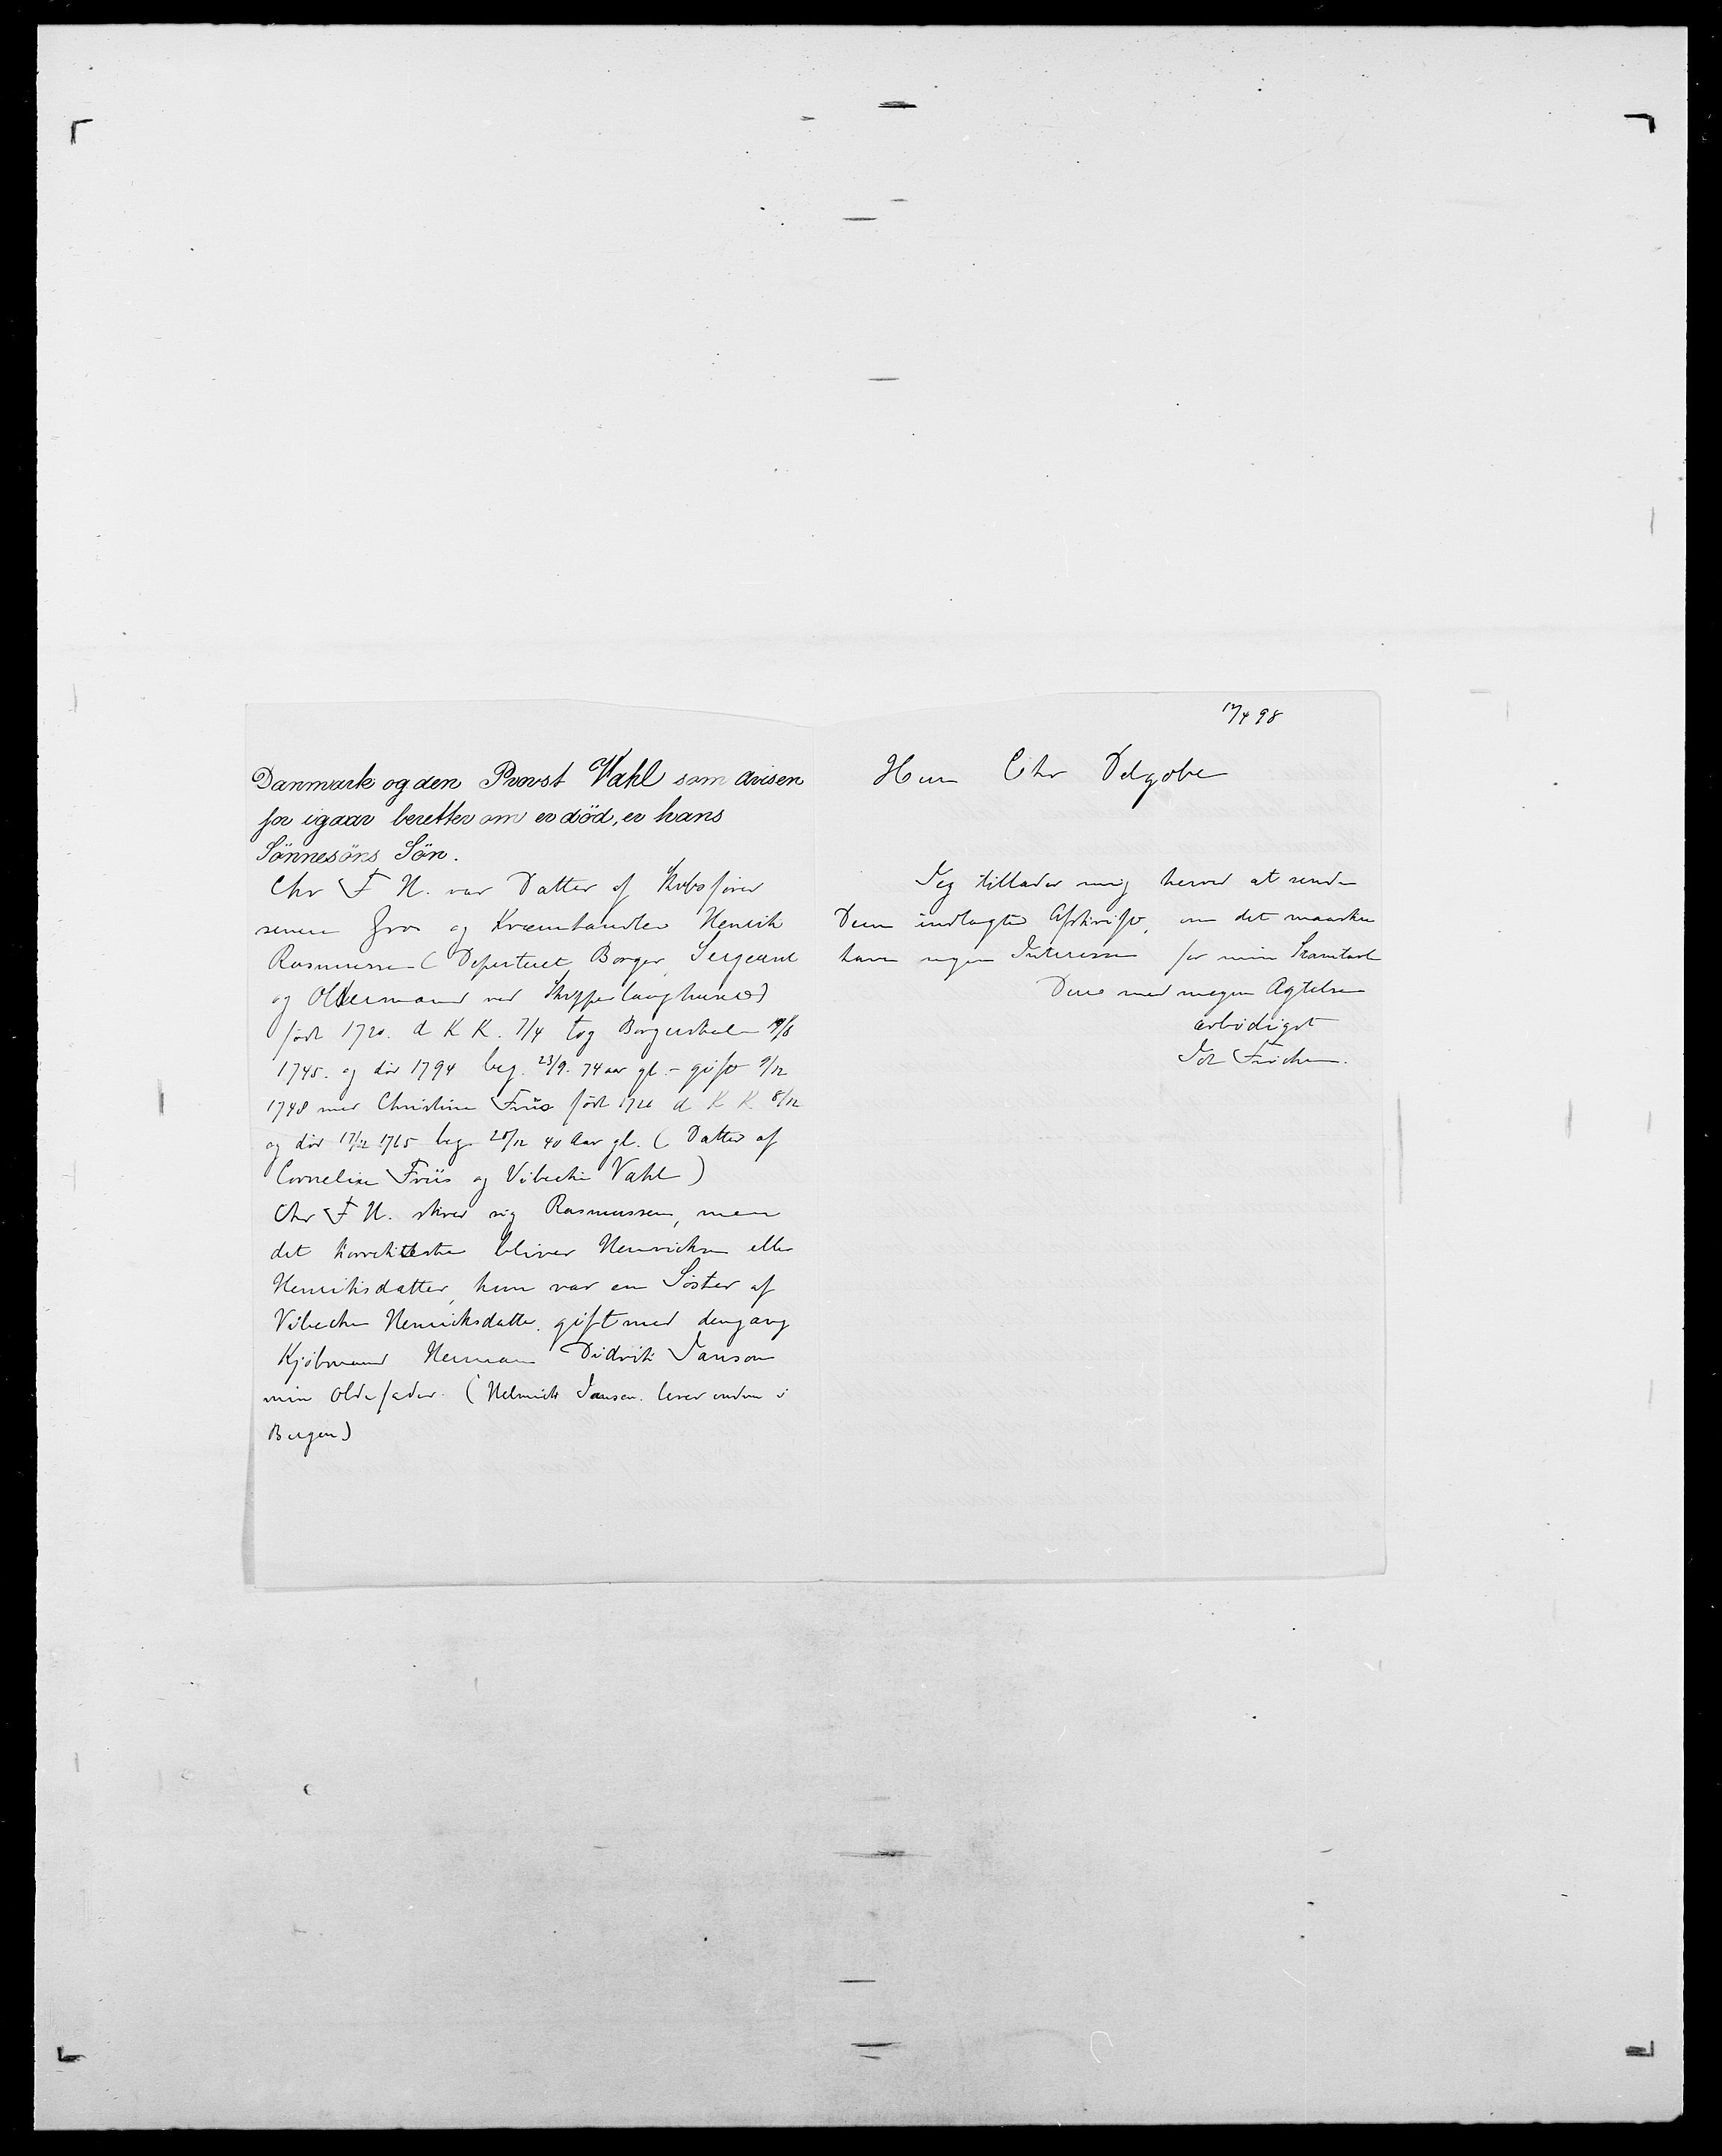 Danmark og den Provst Vahl som avisen
for igaar beretter om er död, er hans
Sönnesöns Sön.
Chr F H. var Datter af Skibsfører
senere Gros og Kræmhandler Henrik
Rasmussen (Deputeret Borger, Sergeant
og Oldermand ved Skipperlaughuset)
født 1720. d K K. 7/4 tog Borgerskab 19/8
1745. og död 1794 beg. 23/9. 74 aar gl. - gift 9/12
1748 med Christine Friis født 1726 d K K. 8/12
og död 17/12 1765 beg 28/12 40 Aar gl. (Datter af
Cornelius Friis og Vibecke Vahl)
Chr F H. skrev sig Rasmussen, men
det korrekteste bliver Henriksen eller
Henriksdatter, hun var en Søster af
Vibecke Henricksdatter. gift med dengang
Kjöbmand Herman Didrik Janson
min Oldefader. (Helmich Janson. lever endnu i
Bergen)
17/4 98
Herr Chr Delgobe
Jeg tillader mig herved at sende
Dem indlagte Afskrift, om det maaske
have nogen Interesse for min Stamtavle
Deres med megen Agtelse
ærbödigst